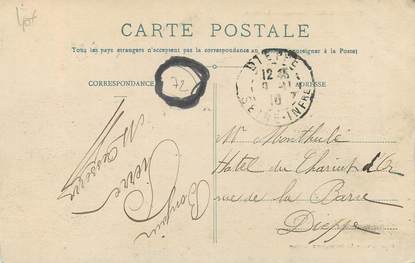 CARTE POSTALE
Tous les pays étrangers n'acceptent pas la correspondance au (se renseigner à la Poste)
CORRESPONDANCE
ADRESSE
72
DIEPPE
12
10
SEINE-INFRE
Mr Monthulé
Hotel du Chariot d'Or
rue de la Barre
Dieppe
Bonjour
Pierre